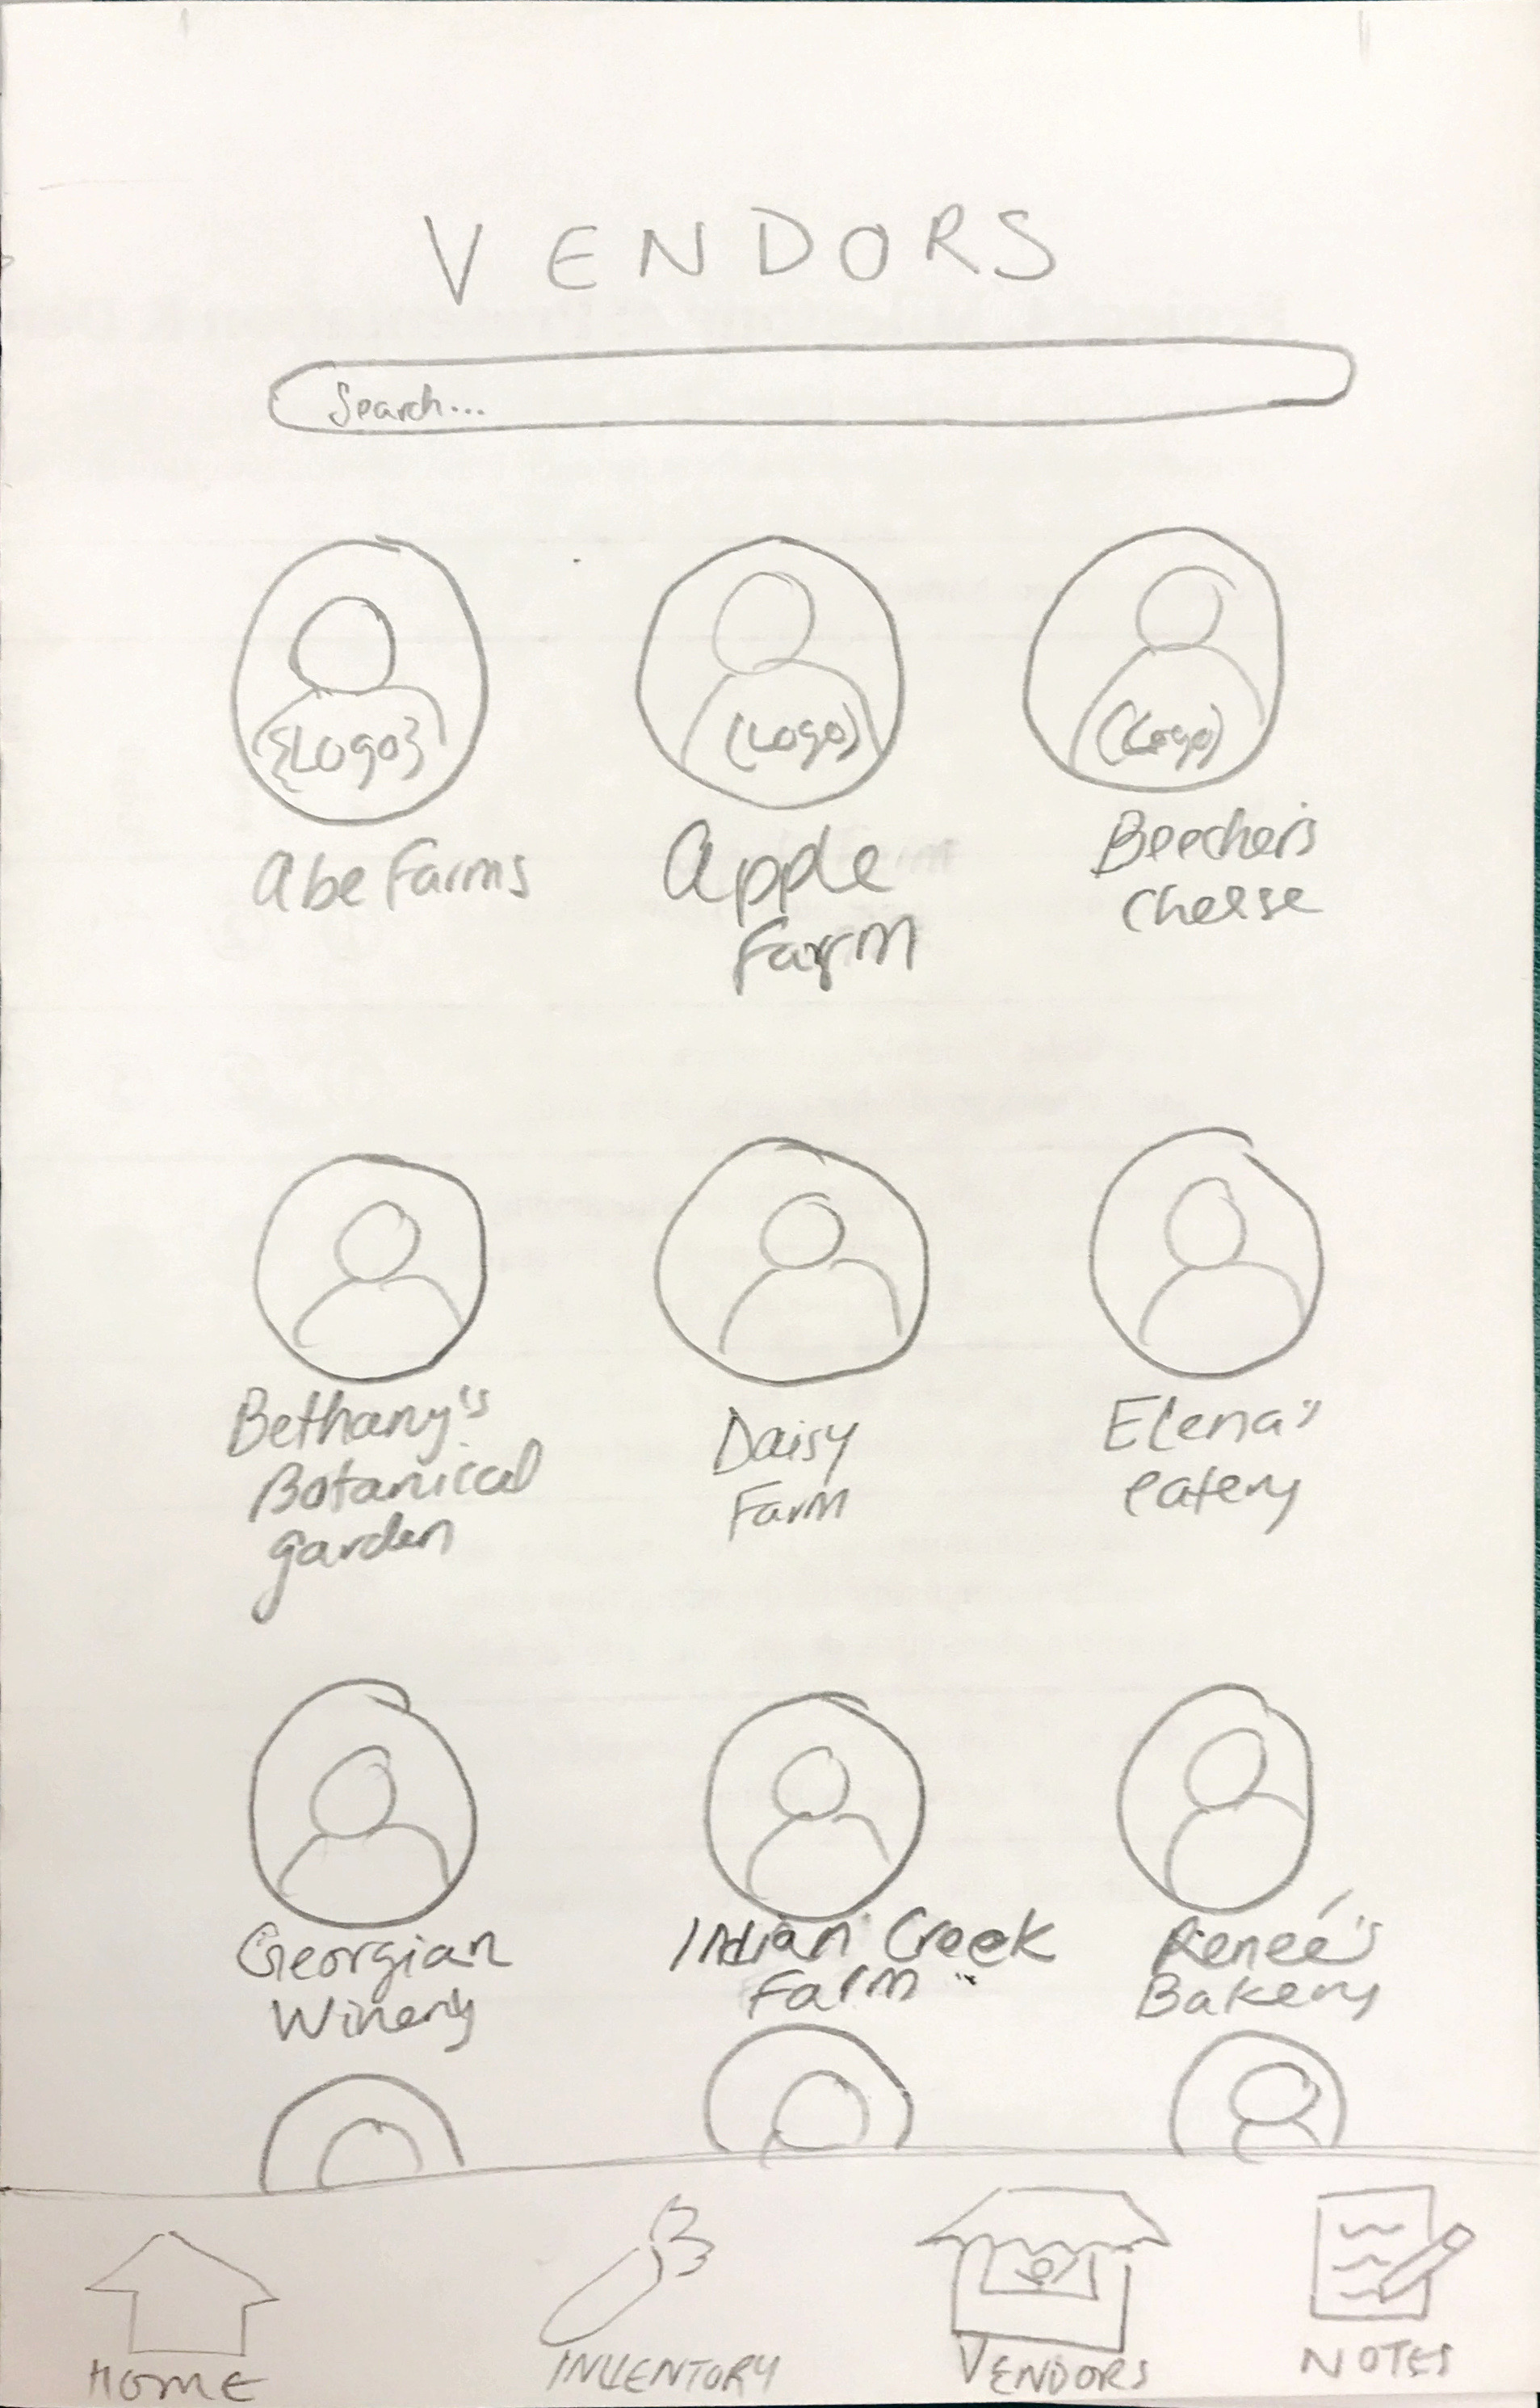 VENDORS
Search...
{Logo}
(Logo)
(Logo)
Abe Farms
Apple
Farm
Beecher's
Cheese
Bethany's
Botanical
garden
Daisy
Farm
Elena's
eatery
Georgian
Winery
Indian Creek
Farm
Reneé's
Bakery
HOME
INVENTORY
VENDORS
NOTES